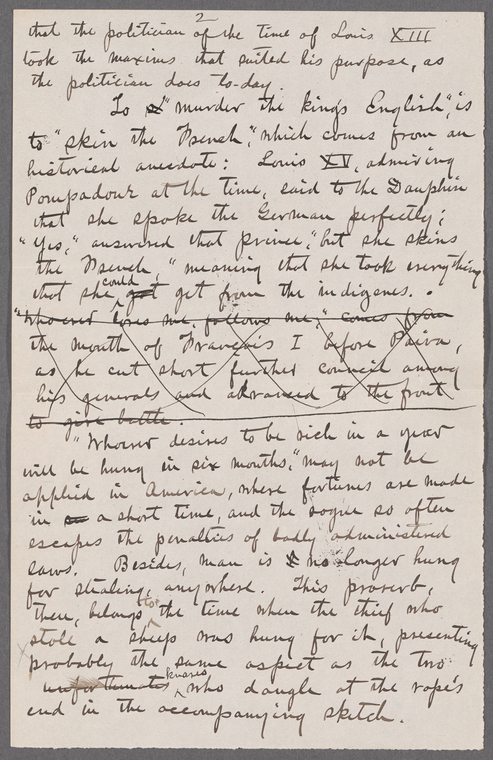 2
that the politician of the time of Louis XIII
took the maxims that suited his purpose, as
the politician does to-day.
To "murder the kings English", is
to "skin the French", which comes from an
historical anecdote: Louis XV, admiring
Pompadour at the time, said to the Dauphin
that she spoke the German perfectly;
"Yes," answered that prince, "but she skins
the French," meaning that she took everything
that she could get from the indigenes.
"Whoever loves me, follows me," comes from
the mouth of François I before Pavia,
as he cut short further council among
his generals and advanced to the front
to give battle.
"Whoever desires to be rich in a year
will be hung in six months," may not be
applied in America, where fortunes are made
in a short time, and the rogue so often
escapes the penalties of badly administered
laws. Besides, man is no longer hung
for stealing, anywhere. This proverb,
then, belongs to the time when the thief who
stole a sheep was hung for it, presenting
probably the same aspect as the two
unfortunates knaves who dangle at the rope's
end in the accompanying sketch.